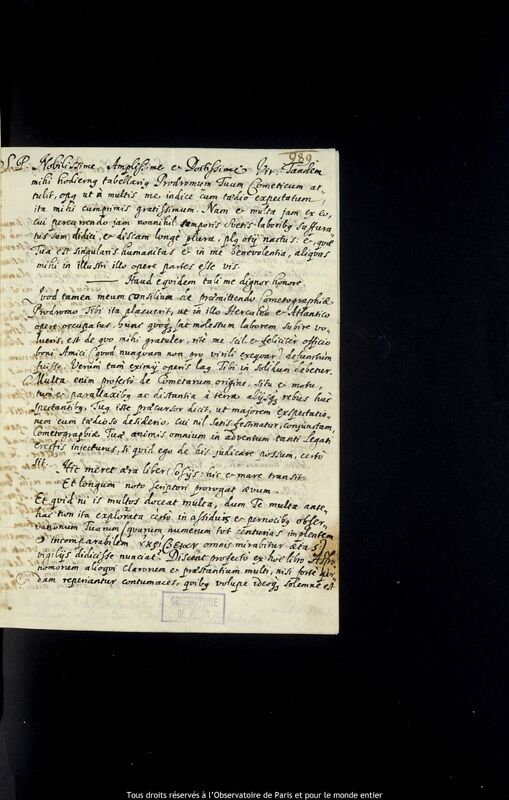 989
S. P. Nobilissime Amplissime et Doctissime Vir. Tandem
mihi hodiernq tabellariq Prodromum Tuum Cometicum at-
tulit, opq ut à multis me indice cum tædio expectatum,
ita mihi cumprimis gratissimum. Nam et multa jam ex eo,
cui percurrendo jam nonnihil temporis cæteris laboribq suffura-
tus sum, didici, et discam longè plura, plq otij nactus: et, quæ
Tua est singularis humanitas et in me benevolentia, aliquas
mihi in illustri illo opere partes esse vis.
Haud equidem tali me dignor honore.
Quod tamen meum consilium de præmittendo Cometographiæ
Prodromo Tibi ita placuerit, ut in illo Herculeo et Atlantico
opere occupatus, hunc quoqz sat molestum laborem subire vo-
lueris, est de quo mihi gratuler, rite me scil. et feliciter officio
boni Amici (quod nunquam non pro virili exequar) defunctum
fuisse. Verum tam eximij operis laq Tibi in solidum debetur.
Multa enim profectò de Cometarum origine, situ et motu,
tum et parallaxibq ac distantia à terra, alijsqz rebus huc
spectantibq, Tuq iste præcursor dicit, ut majorem expectatio-
nem cum tædioso desiderio, cui nil satis festinatur, conjunctam,
Cometographiæ Tuæ animis omnium in adventum tanti Legati
erectis injecturus, si quid ego de his judicare possum, certò
sit. Hic meret æra liber Sosijs: hic et mare transit
Et longum noto scriptori prorogat ævum.
Et quid ni is multos doceat multa, dum Te multa ante-
hac non ita explorata certò in assiduis et pernocibq obser-
vationum Tuarum (quarum numerum tot centurias implentem
incomparabilem omnis mirabitur ætas)
vigilijs didicisse nunciat? Discent profectò ex hoc libro Astro-
nomorum alioqui clarorum et præstantium multi, nisi forte qui-
dam reperiantur contumaces, quibq volupe ideoqz solemne est
OBSERVATOIRE
DE PARIS
Tous droits réservés à l'Observatoire de Paris et pour le monde entier